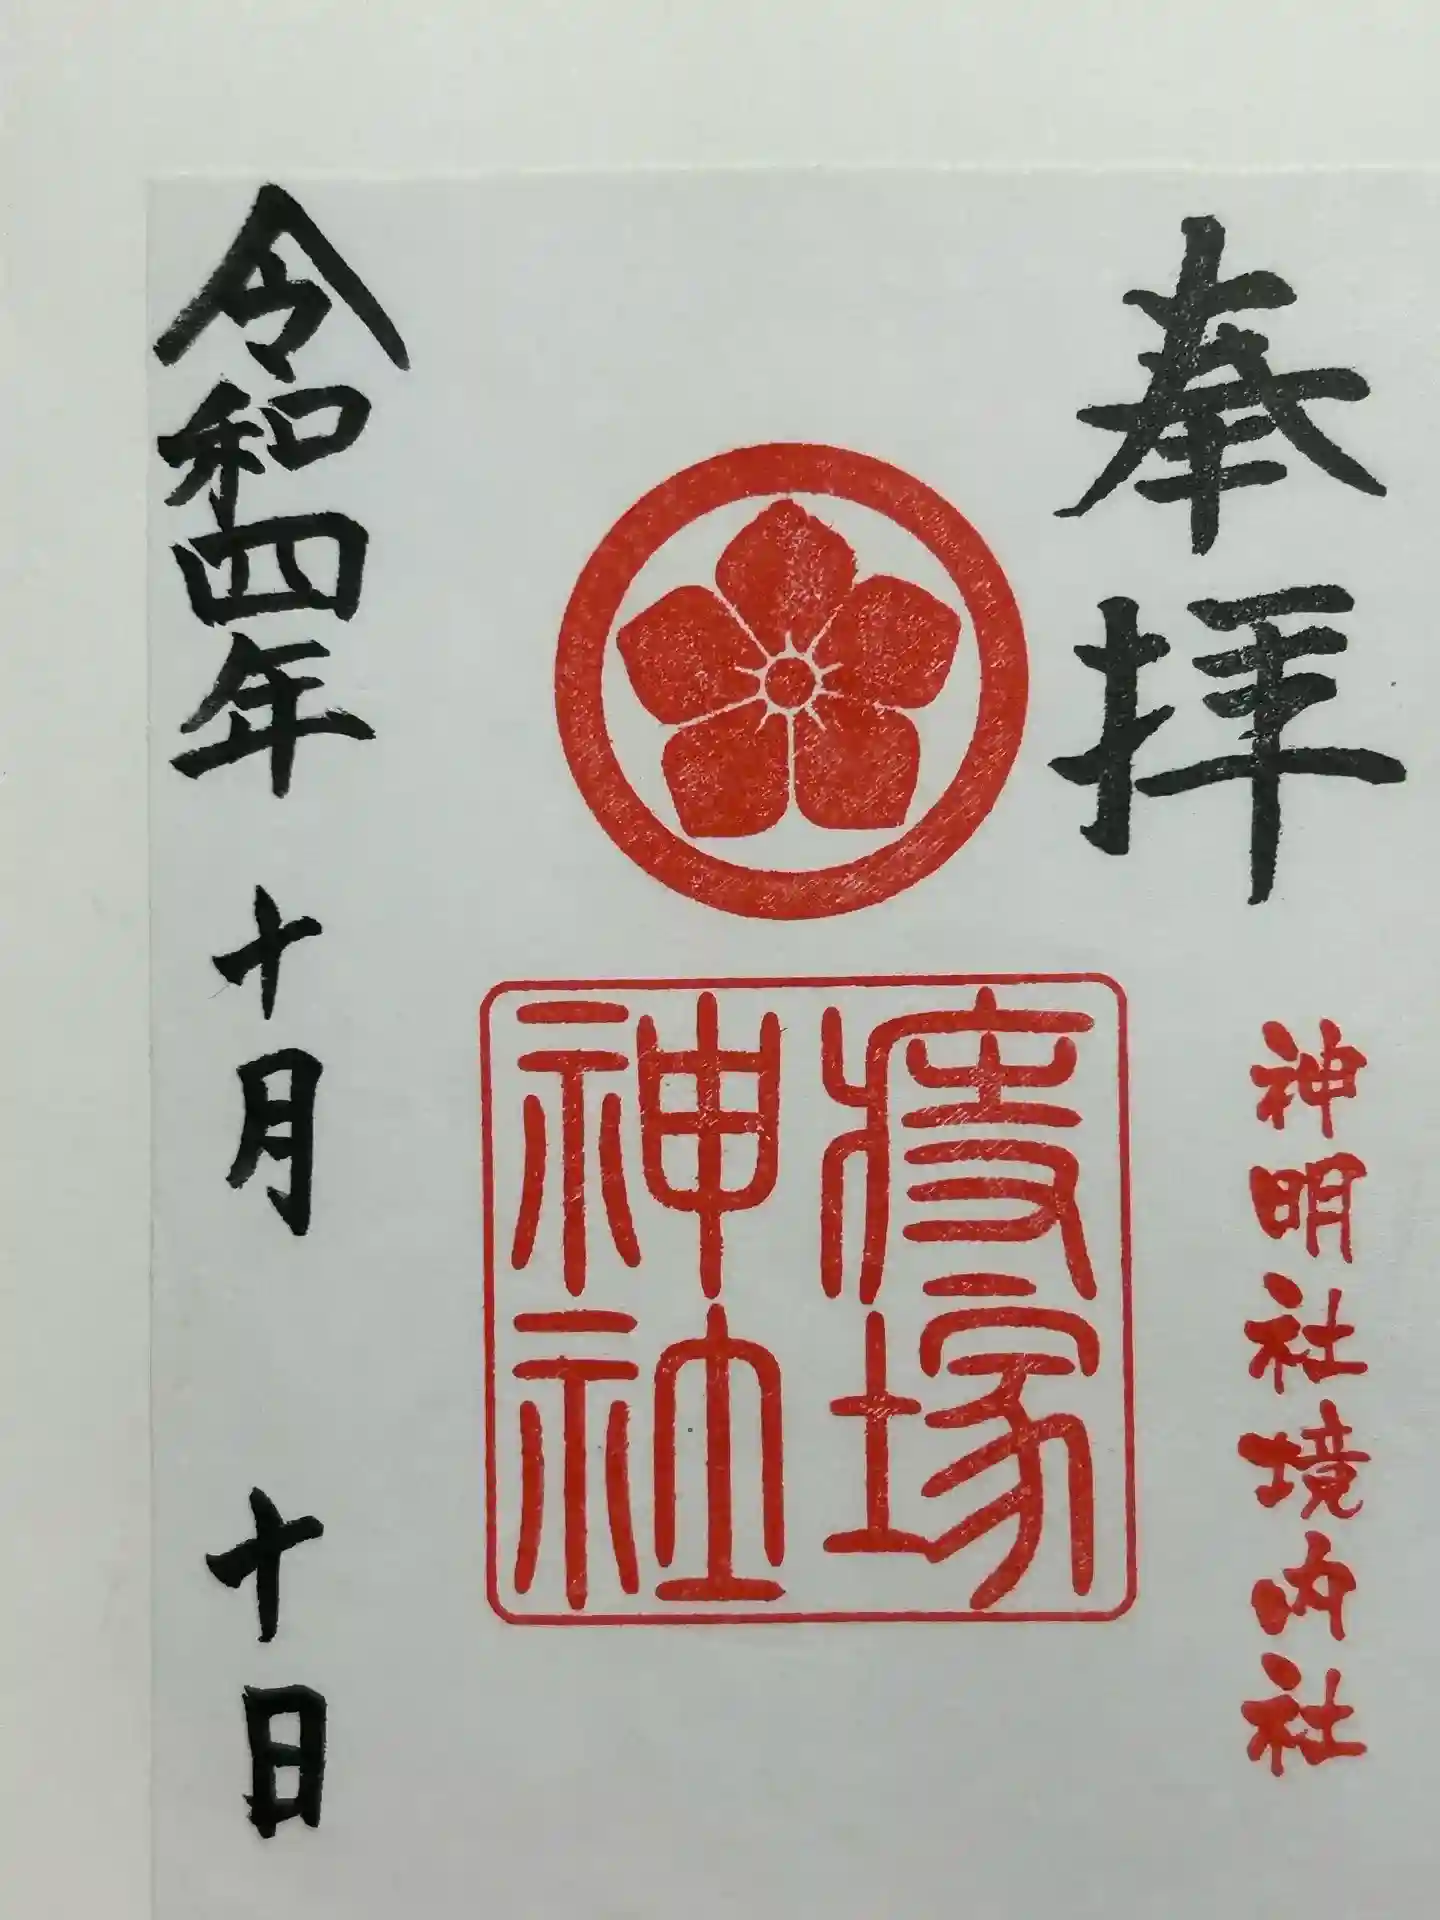 奉拝
神明社境内社
塚
神社
令和四年十月十日